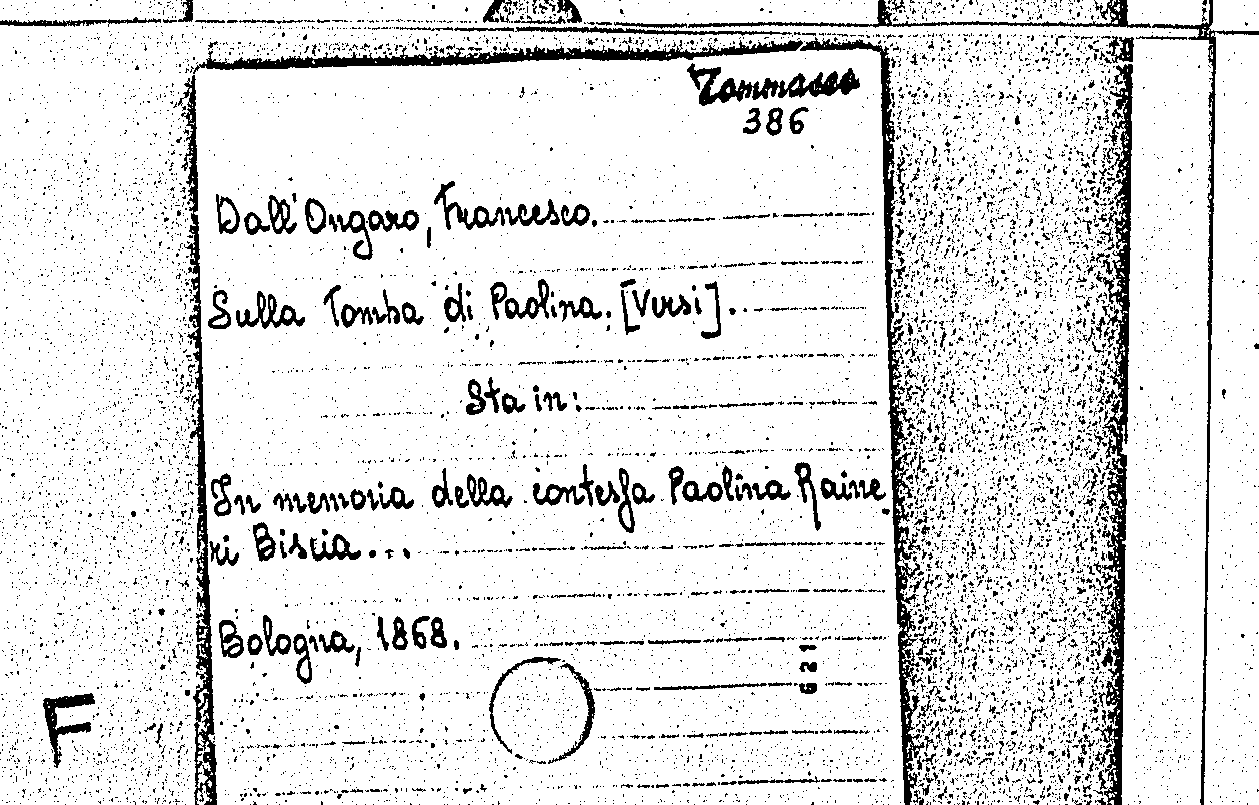 Tommaseo
386
Dall'Ongaro, Francesco.
Sulla Tomba di Paolina. [Versi].
Sta in:
In memoria della contessa Paolina Raine
ri Biscia...
Bologna, 1868.
621
F